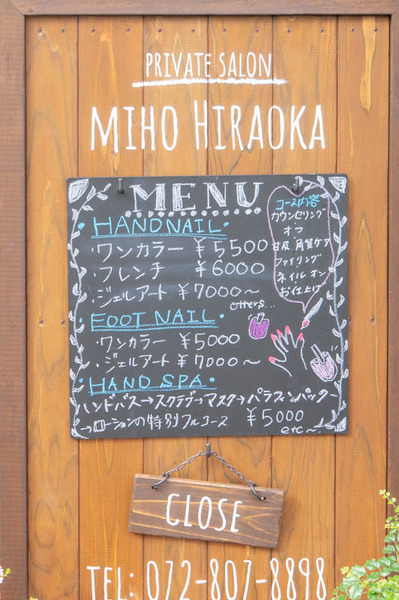 PRIVATE SALON
MIHO HIRAOKA
MENU
・HANDNAIL・
・ワンカラー ¥5500
・フレンチ ¥6000
・ジェルアート ¥7000〜
others...
・FOOT NAIL・
・ワンカラー ¥5000
・ジェルアート ¥7000〜
・HAND SPA・
ハンドバス→スクラブ→マスク→パラフィンパック
→ローションの特別フルコース ¥5000
etc〜
コース内容
カウンセリング
オフ
甘皮 角質ケア
ファイリング
ネイル オン
お仕上げ
CLOSE
TEL: 072-807-8898